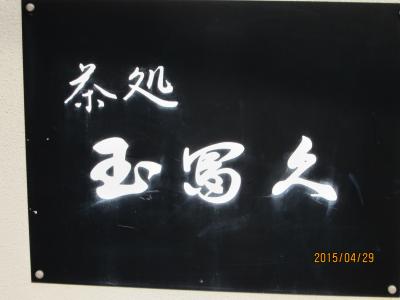 茶処
玉冨久
2015/04/29